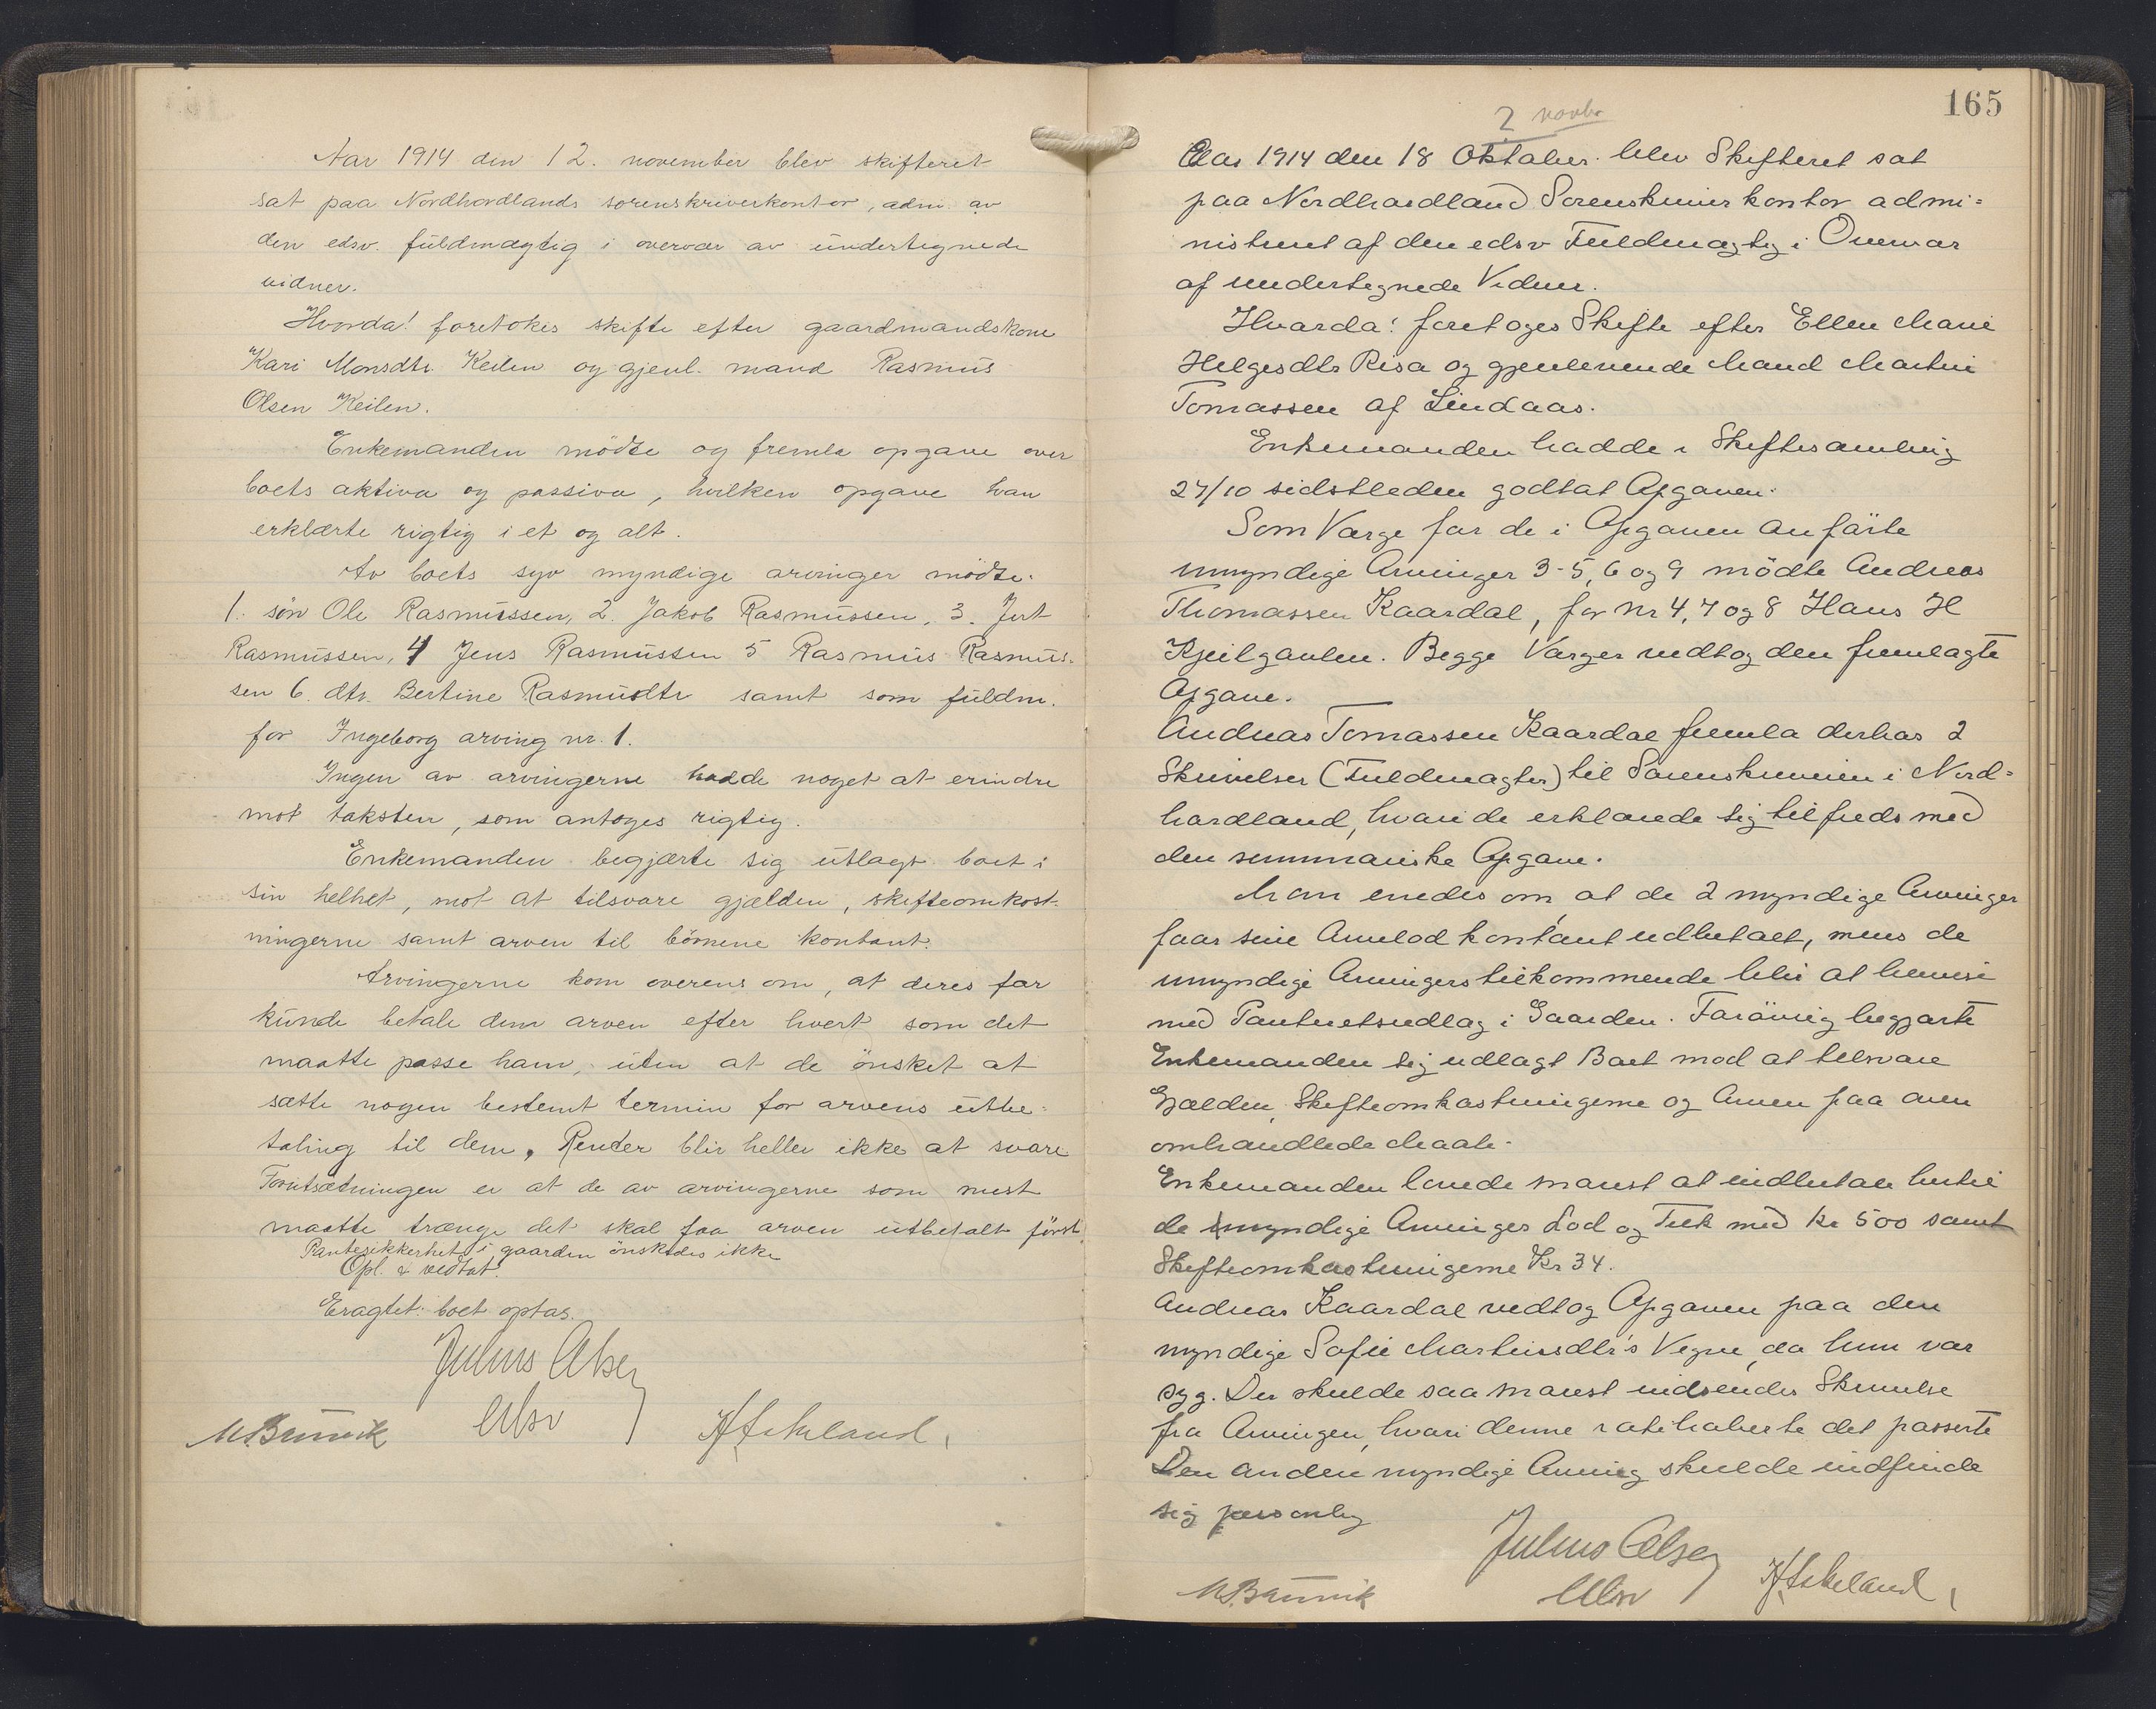 Aar 1914 den 12. november blev skifteret
sat paa Nordhordlands sorenskriverkontor, adm. av
den edsv. fuldmægtig i overvær av undertegnede
vidner.
Hvorda! foretokes skifte efter gaardmandskone
Kari Monsdtr. Keilen og gjenl. mand Rasmus
Olsen Keilen.
Enkemanden mødte og fremla opgave over
boets aktiva og passiva, hvilken opgave han
erklærte rigtig i et og alt.
Av boets syv myndige arvinger mødte:
1. søn Ole Rasmussen, 2. Jakob Rasmussen, 3.
Rasmussen, 4 Jens Rasmussen 5 Rasmus Rasmus-
sen 6. dtr. Bertine Rasmusdtr samt som fuldm.
for Ingeborg arving nr. 1.
Ingen av arvingerne hadde noget at erindre
mot taksten, som antoges rigtig.
Enkemanden begjærte sig utlagt boet i
sin helhet, mot at tilsvare gjælden, skifteomkost-
ningerne samt arven til børnene kontant.
Arvingerne kom overens om, at deres far
kunde betale dem arven efter hvert som det
maatte passe ham, uten at de ønsket at
sætte nogen bestemt termin for arvens utbe-
taling til dem, Renter blir heller ikke at svare
Forutsætningen er at de av arvingerne som mest
maatte trænge det skal faa arven utbetalt først.
Pantesikkerhet i gaarden ønskedes ikke
Opl. & vedtat.
Eragtet: boet optas.
Julius Olsen
edsv
M. Brunvik H Askeland,
165
2 novbr
Aar 1914 den 18 Oktober blev Skifteret sat
paa Nordhordland Sorenskriverkontor admi=
nistreret af den edsv Fuldmægtig i Overvær
af undertegnede Vidner.
Hvorda! foretoges Skifte efter Ellen Marie
Helgesdtr Risa og gjenlevende Mand Martin
Tomassen af Lindaas.
Enkemanden hadde i Skiftesamling
27/10 sidstleden godtat Opgaven.
Som Værge for de i Opgaven anførte
umyndige Arvinger 3-5, 6 og 9 mødte Andreas
Thomassen Kaardal, for nr 4, 7 og 8 Hans H
Kjeilgavlen. Begge Værger vedtog den fremlagte
Opgave.
Andreas Tomassen Kaardal fremla derhos 2
Skrivelser (Fuldmagter) til Sorenskriveren i Nord=
hordland, hvori de erklærede sig tilfreds med
den summariske Opgave.
Man enedes om at de 2 myndige Arvinger
faar sine Arvelod kontant udbetalt, mens de
umyndige Arvingers tilkommende blir at bevise
med Panteretsudlæg i Gaarden. Forøvrig begjærte
Enkemanden sig udlagt Boet mod at tilsvare
Gjælden, Skifteomkostningerne og Arven paa oven
omhandlede Maate.
Enkemanden lovede snarest at indbetale hertil
de myndige Arvinges Lod og med kr 500 samt
Skifteomkostningerne Kr 34.
Andreas Kaardal vedtog Opgaven paa den
myndige Sofie Martinsdtr's Vegne, da hun var
syg. Der skulde saa snarest indsendes Skrivelse
fra Arvingen, hvori denne ratihaberte det passerte
Den anden myndige Arving skulde indfinde
sig personlig
Julius Olsen
edsv
M. Brunvik H Askeland,